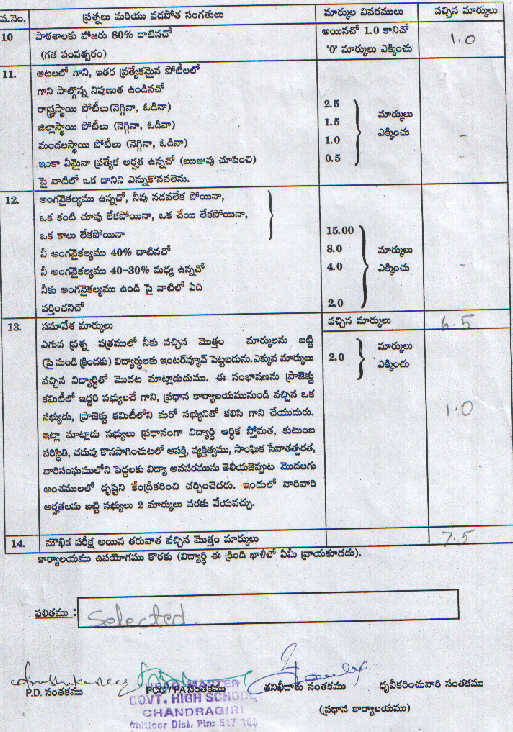 వ.నెం. ప్రశ్నలు మరియు వడపోత సంగతులు మార్కుల వివరములు వచ్చిన మార్కులు
10 పాఠశాలకు హాజరు 80% దాటినచో అయినచో 1.0 కానిచో 1.0
(గత సంవత్సరం) '0' మార్కులు ఎక్కించు
11. ఆటలలో గాని, ఇతర ప్రత్యేకమైన పోటీలలో
గాని పాల్గొన్న నిపుణత ఉండినచో
రాష్ట్రస్థాయి పోటీలు(నెగ్గినా, ఓడినా) 2.5 మార్కులు
జిల్లాస్థాయి పోటీలు (నెగ్గినా, ఓడినా) 1.5 ఎక్కించు
మండలస్థాయి పోటీలు (నెగ్గినా, ఓడినా) 1.0
ఇంకా ఏమైనా ప్రత్యేక అర్హత ఉన్నచో (ఋజువు చూపించి) 0.5
పై వాటిలో ఒక దానిని ఎన్నుకొనవలెను.
12. అంగవైకల్యము ఉన్నచో, నీవు నడవలేక పోయినా,
ఒక కంటి చూపు లేకపోయినా, ఒక చేయి లేకపోయినా,
ఒక కాలు లేకపోయినా 15.00 మార్కులు
నీ అంగవైకల్యము 40% దాటినచో 8.0 ఎక్కించు
నీ అంగవైకల్యము 40-30% మధ్య ఉన్నచో 4.0
నీకు అంగవైకల్యము ఉండి పై వాటిలో ఏది
వర్తించనిచో 2.0
13. సమావేశ మార్కులు వచ్చిన మార్కులు 6.5
ఎగువ ప్రశ్న పత్రములో నీకు వచ్చిన మొత్తం మార్కులను బట్టి 2.0 మార్కులు
(పై నుండి క్రిందకు) విద్యార్థులకు ఇంటర్వ్యూవ్ పెట్టబడును. ఎక్కువ మార్కులు ఎక్కించు
వచ్చిన విద్యార్థితో మొదట మాట్లాడుదుము. ఈ సంభాషణను ప్రాజెక్టు
కమిటీలో ఇద్దరి సభ్యులచే గాని, ప్రధాన కార్యాలయమునుండి వచ్చిన ఒక
సభ్యుడు, ప్రాజెక్టు కమిటీలోని మరో సభ్యునితో కలిసి గాని చేయుదురు. 1.0
ఇట్లా మాట్లాడు సభ్యులు ప్రధానంగా విద్యార్థి ఆర్థిక స్తోమత, కుటుంబ
పరిస్థితి, చదువు కొనసాగించుటలో ఆసక్తి, వ్యక్తిత్వము, సాంఘిక సేవాతత్పరత,
వారిసంఘములోని పెద్దలకు విద్యా అవసరమును తెలియజెప్పుట మొదలగు
అంశములలో దృష్టిని కేంద్రీకరించి చర్చించెదరు. ఇందులో వారివారి
అర్హతలను బట్టి సభ్యులు 2 మార్కులు వరకు వేయవచ్చు.
14. మౌఖిక పరీక్ష అయిన తరువాత వచ్చిన మొత్తం మార్కులు 7.5
కార్యాలయము ఉపయోగము కొరకు (విద్యార్థి ఈ క్రింది ఖాళీలో ఏమీ వ్రాయకూడదు).
ఫలితము : Selected.
P.D. సంతకము PCO / PA సంతకము తనిఖీదారు సంతకము ధృవీకరించువారి సంతకము
GOVT. HIGH SCHOOL
CHANDRAGIRI (ప్రధాన కార్యాలయము)
Chittoor Dist. Pin: 517